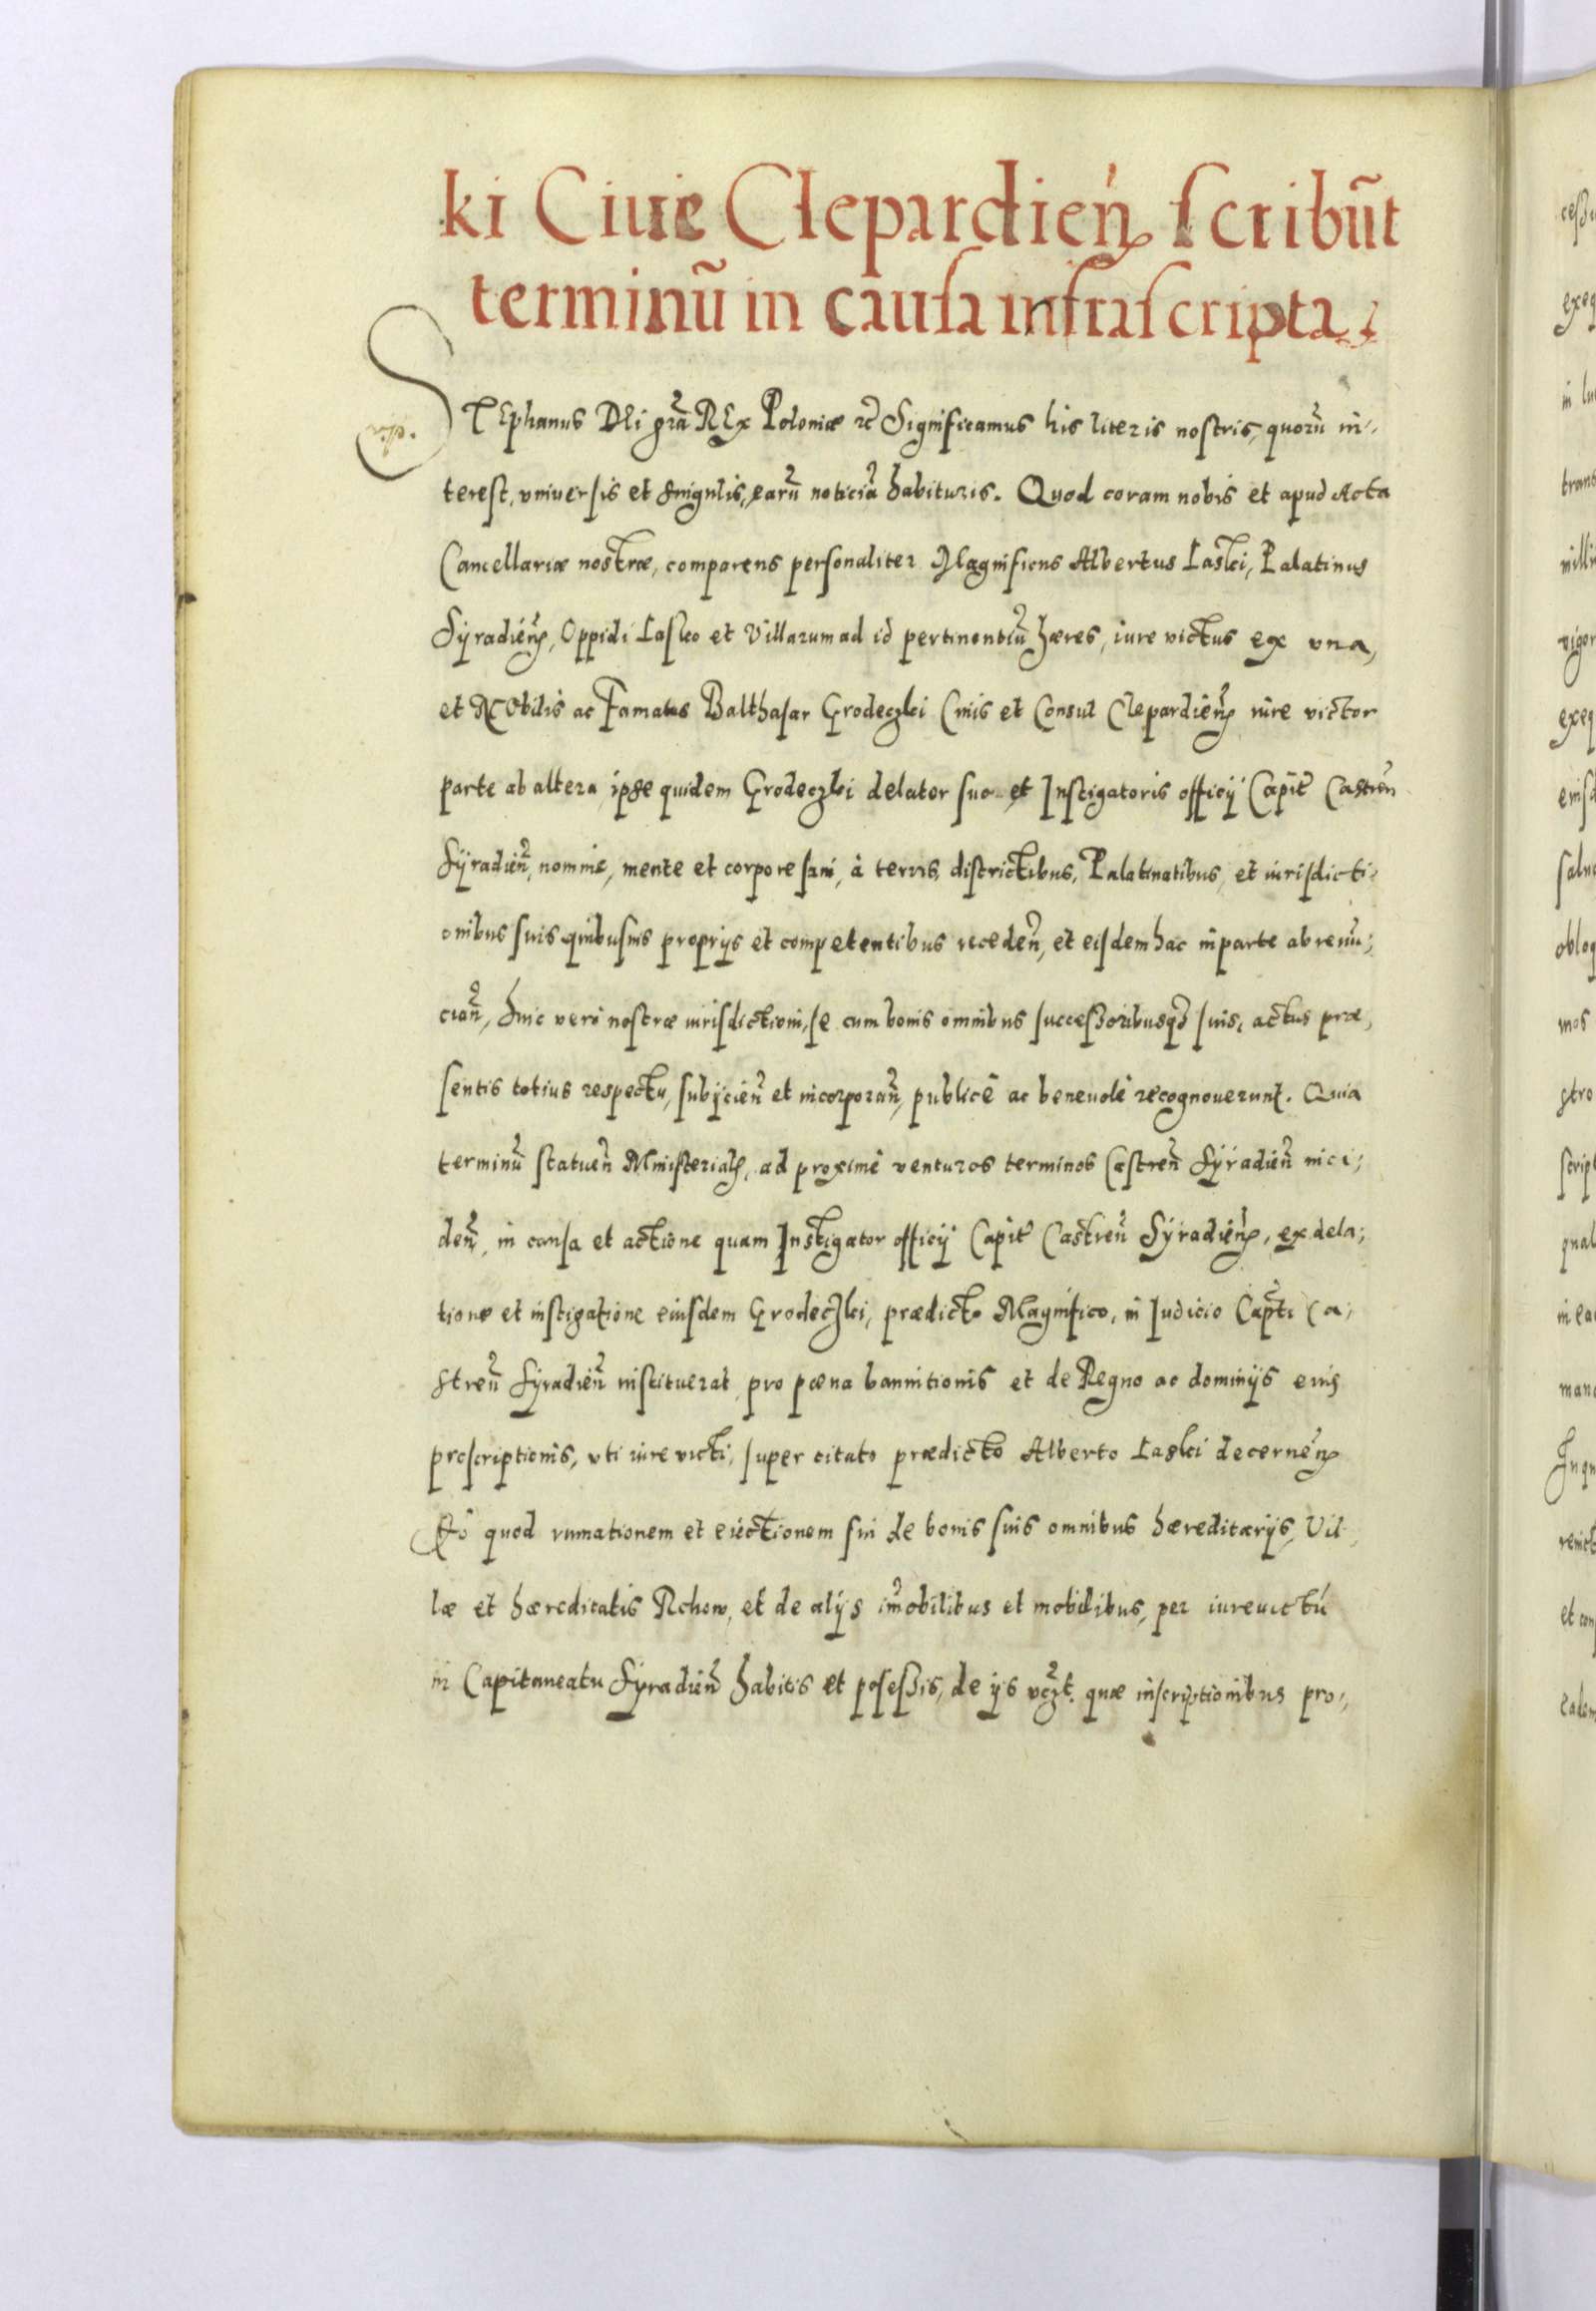 ki Ciuie Clepardień scribūt
terminū in causa infrascripta.
STEphanus DEi gr̃a REx Poloniæ ꝛc Significamus his literis nostris, quorū in-
terest, vniuersis et singulis, earū noticiā habituris. Quod coram nobis et apud Acta
Cancellariæ nostræ, comparens personaliter Magnificus Albertus Laski, Palatinus
Syradień, Oppidi Lasko et Villarum ad id pertinentiū hæres, iure victus ex vna,
et NObilis ac Famatus Balthasar Grodeczki Ciuis et Consul Clepardień iure victor
parte ab altera, ipse quidem Grodeczki delator suo et Instigatoris officij Capit̃ Castreñ
Syradień, nomine, mente et corpore sani, à terris, districtibus, Palatinatibus, et iurisdicti-
onibus suis quibusuis proprijs et competentibus recedeñ, et eisdem hac in parte abrenū-
cian̄, huic verò nostræ iurisdictioni, se cum bonis omnibus successoribusqꝫ suis, actus præ,
sentis totius respectu, subijcień et incorporañ, publicè ac beneuolè recognouerunt. Quia
terminū statueñ Ministerialꝫ, ad proximè venturos terminos Castreñ Syradień inci-
deñ, in causa et actione quam Instigator officij Capit̃ Castreñ Syradień, ex dela-
tione et instigatione eiusdem Grodeczki, prædicto Magnifico, in Iudicio Cap̃ti Ca-
streñ Syradień instituerat, pro pœna bannitionis et de Regno ac dominijs eius
proscriptionis, vti iure victi, super citato prædicto Alberto Laski decerneń
Eò quod rumationem et eiectionem sui de bonis suis omnibus hæreditarijs, Vil-
læ et hæreditatis Rchow, et de alijs im̃obilibus et mobilibus, per iureuictū
in Capitaneatu Syradień habitis et posessis, de ijs vczt. quæ inscriptionibus pro-